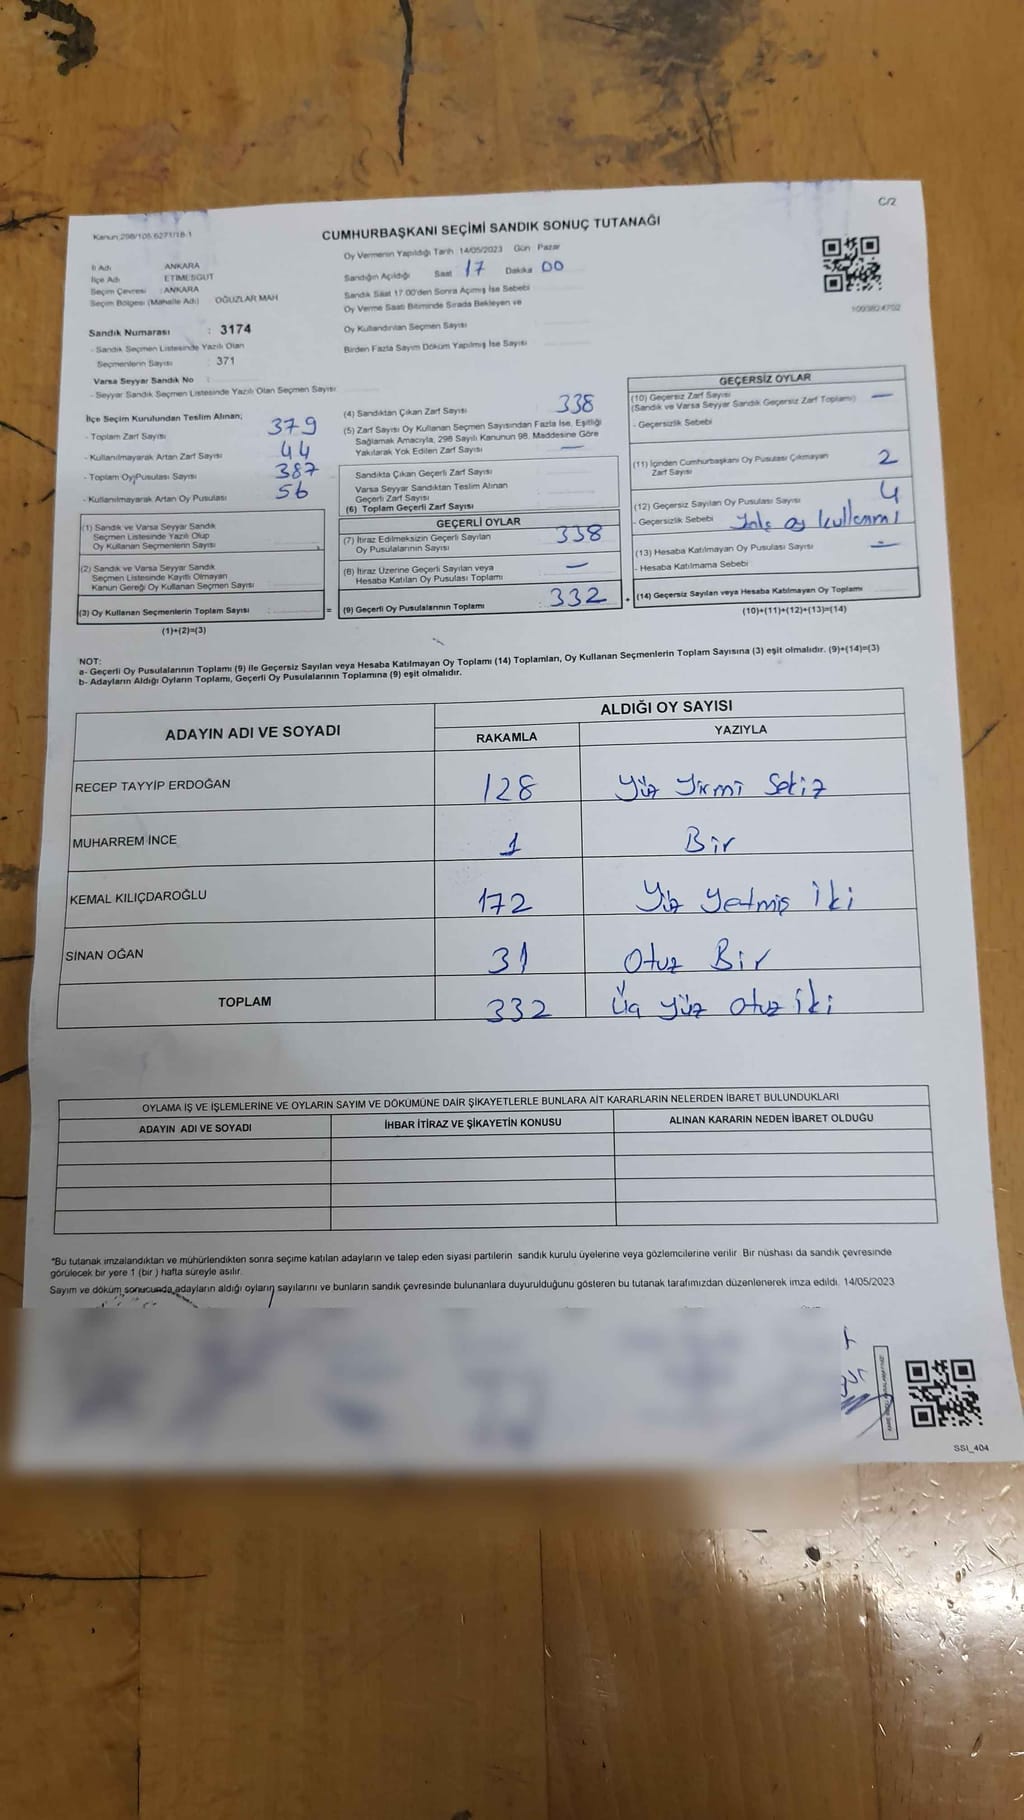 C/2
Kanun:298/105 6271/18-1
CUMHURBAŞKANI SEÇİMİ SANDIK SONUÇ TUTANAĞI
İl Adı ANKARA
İlçe Adı ETİMESGUT
Seçim Çevresi : ANKARA
Seçim Bölgesi (Mahalle Adı) OĞUZLAR MAH
Sandık Numarası : 3174
- Sandık Seçmen Listesinde Yazılı Olan
Seçmenlerin Sayısı : 371
Varsa Seyyar Sandık No
- Seyyar Sandık Seçmen Listesinde Yazılı Olan Seçmen Sayısı
Oy Vermenin Yapıldığı Tarih :14/05/2023 Gün : Pazar
Sandığın Açıldığı Saat 17 Dakika 00
Sandık Saat 17.00'den Sonra Açımış İse Sebebi
Oy Verme Saati Bitiminde Sırada Bekleyen ve
Oy Kullandırılan Seçmen Sayısı
Birden Fazla Sayım Döküm Yapılmış İse Sayısı
1093824702
İlçe Seçim Kurulundan Teslim Alınan;
- Toplam Zarf Sayısı 379
- Kullanılmayarak Artan Zarf Sayısı 44
- Toplam Oy Pusulası Sayısı 387
- Kullanılmayarak Artan Oy Pusulası 56
(1) Sandık ve Varsa Seyyar Sandık
Seçmen Listesinde Yazılı Olup
Oy Kullanan Seçmenlerin Sayısı
(2) Sandık ve Varsa Seyyar Sandık
Seçmen Listesinde Kayıtlı Olmayan
Kanun Gereği Oy Kullanan Seçmen Sayısı
(3) Oy Kullanan Seçmenlerin Toplam Sayısı =
(1)+(2)=(3)
(4) Sandıktan Çıkan Zarf Sayısı 338
(5) Zarf Sayısı Oy Kullanan Seçmen Sayısından Fazla İse, Eşitliği
Sağlamak Amacıyla, 298 Sayılı Kanunun 98. Maddesine Göre
Yakılarak Yok Edilen Zarf Sayısı —
Sandıkta Çıkan Geçerli Zarf Sayısı
Varsa Seyyar Sandıktan Teslim Alınan
Geçerli Zarf Sayısı
(6) Toplam Geçerli Zarf Sayısı
GEÇERLİ OYLAR
(7) İtiraz Edilmeksizin Geçerli Sayılan
Oy Pusulalarının Sayısı 338
(8) İtiraz Üzerine Geçerli Sayılan veya
Hesaba Katılan Oy Pusulası Toplamı —
(9) Geçerli Oy Pusulalarının Toplamı : 332 +
GEÇERSİZ OYLAR
(10) Geçersiz Zarf Sayısı —
(Sandık ve Varsa Seyyar Sandık Geçersiz Zarf Toplamı)
- Geçersizlik Sebebi
(11) İçinden Cumhurbaşkanı Oy Pusulası Çıkmayan
Zarf Sayısı 2
(12) Geçersiz Sayılan Oy Pusulası Sayısı 4
- Geçersizlik Sebebi oy kullanmı
(13) Hesaba Katılmayan Oy Pusulası Sayısı —
- Hesaba Katılmama Sebebi
(14) Geçersiz Sayılan veya Hesaba Katılmayan Oy Toplamı
(10)+(11)+(12)+(13)=(14)
NOT:
a- Geçerli Oy Pusulalarının Toplamı (9) ile Geçersiz Sayılan veya Hesaba Katılmayan Oy Toplamı (14) Toplamları, Oy Kullanan Seçmenlerin Toplam Sayısına (3) eşit olmalıdır. (9)+(14)=(3)
b- Adayların Aldığı Oyların Toplamı, Geçerli Oy Pusulalarının Toplamına (9) eşit olmalıdır.
ADAYIN ADI VE SOYADI ALDIĞI OY SAYISI
RAKAMLA YAZIYLA
RECEP TAYYİP ERDOĞAN 128 Yüz Yirmi Sekiz
MUHARREM İNCE 1 Bir
KEMAL KILIÇDAROĞLU 172 Yüz Yetmiş İki
SİNAN OĞAN 31 Otuz Bir
TOPLAM 332 Üç yüz otuz iki
OYLAMA İŞ VE İŞLEMLERİNE VE OYLARIN SAYIM VE DÖKÜMÜNE DAİR ŞİKAYETLERLE BUNLARA AİT KARARLARIN NELERDEN İBARET BULUNDUKLARI
ADAYIN ADI VE SOYADI İHBAR İTİRAZ VE ŞİKAYETİN KONUSU ALINAN KARARIN NEDEN İBARET OLDUĞU
*Bu tutanak imzalandıktan ve mühürlendikten sonra seçime katılan adayların ve talep eden siyasi partilerin sandık kurulu üyelerine veya gözlemcilerine verilir. Bir nüshası da sandık çevresinde
görülecek bir yere 1 (bir ) hafta süreyle asılır.
Sayım ve döküm sonucunda adayların aldığı oyların sayılarını ve bunların sandık çevresinde bulunanlara duyurulduğunu gösteren bu tutanak tarafımızdan düzenlenerek imza edildi. 14/05/2023
SSI_404